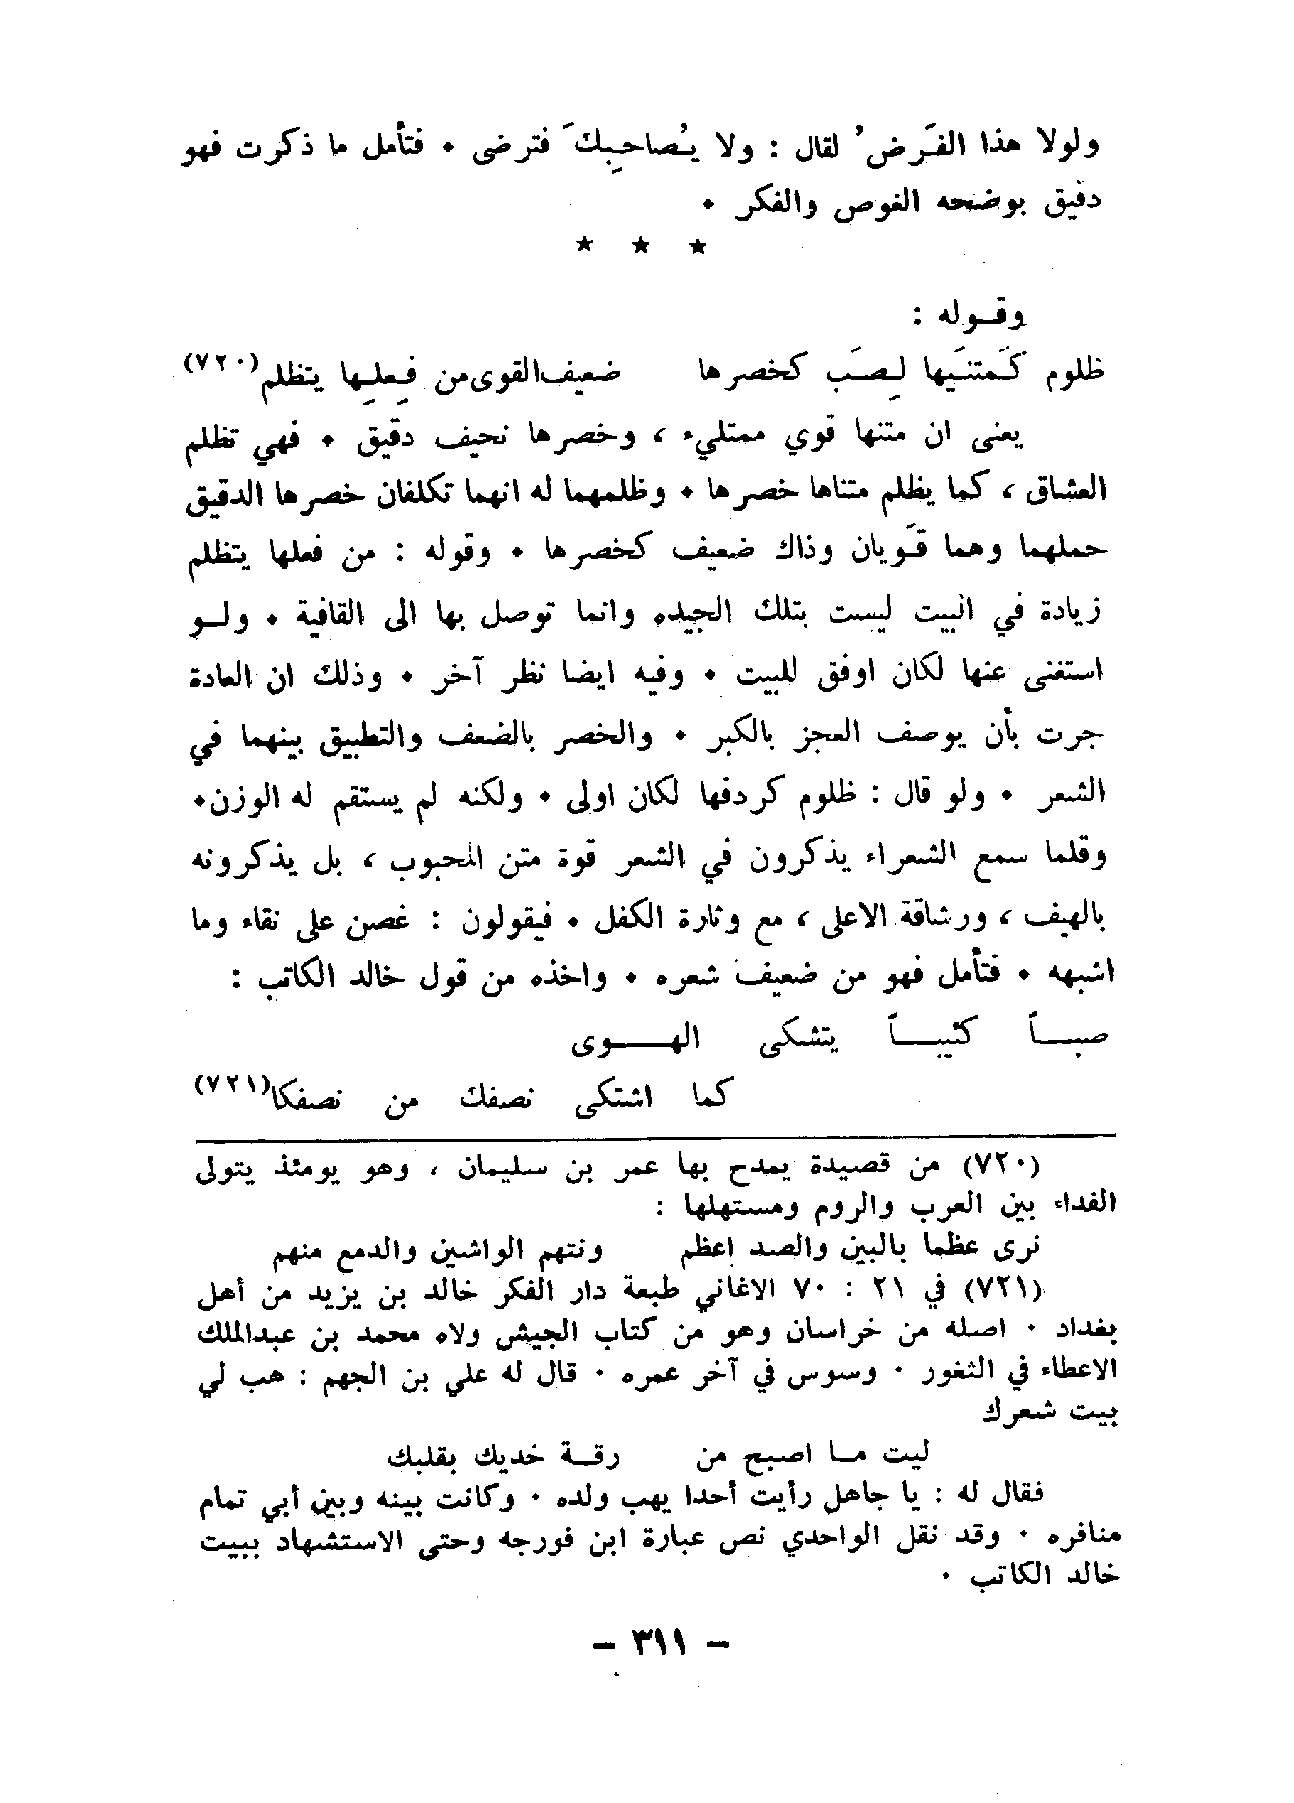 ولولا هذا الفَرض' لقال : ولا يُصاحِبكَ فترضى • فتأمل ما ذكرت فهو
دقيق بوضحه الغوص والفكر •
★ ★ ★
وقـوله :
ظلوم كَمتنَيها لِصَب كخصرها ضعيف القوى من فِعلِها يتظلم(٧٢٠)
يعنى ان متنها قوي ممتليء ، وخصرها نحيف دقيق • فهي تظلم
العشاق ، كما يظلم متناها خصرها • وظلمهما له انهما تكلفان خصرها الدقيق
حملهما وهما قَويان وذاك ضعيف كخصرها • وقوله : من فعلها يتظلم
زيادة في البيت ليست بتلك الجيده وانما توصل بها الى القافية • ولـو
استغنى عنها لكان اوفق للبيت • وفيه ايضا نظر آخر • وذلك ان العادة
جرت بأن يوصف العجز بالكبر • والخصر بالضعف والتطبيق بينهما في
الشعر • ولو قال : ظلوم كردفها لكان اولى • ولكنه لم يستقم له الوزن•
وقلما سمع الشعراء يذكرون في الشعر قوة متن المحبوب ، بل يذكرونه
بالهيف ، ورشاقة الاعلى ، مع وثارة الكفل • فيقولون : غصن على نقاء وما
اشبهه • فتأمل فهو من ضعيف شعره • واخذه من قول خالد الكاتب :
صبــأ كثيبــأ يتشكى الهــــوى
كما اشتكى نصفك من نصفكا(٧٢١)
(٧٢٠) من قصيدة يمدح بها عمر بن سليمان ، وهو يومئذ يتولى
الفداء بين العرب والروم ومستهلها :
نرى عظما بالبين والصد اعظم ونتهم الواشين والدمع منهم
(٧٢١) في ٢١ : ٧٠ الاغاني طبعة دار الفكر خالد بن يزيد من أهل
بغداد • اصله من خراسان وهو من كتاب الجيش ولاه محمد بن عبدالملك
الاعطاء في الثغور • وسوس في آخر عمره • قال له علي بن الجهم : هب لي
بيت شعرك
ليت مـا اصبح من رقـة خديك بقلبك
فقال له : يا جاهل رأيت أحدا يهب ولده • وكانت بينه وبين أبي تمام
منافره • وقد نقل الواحدي نص عبارة ابن فورجه وحتى الاستشهاد ببيت
خالد الكاتب •
– ٣١١ –